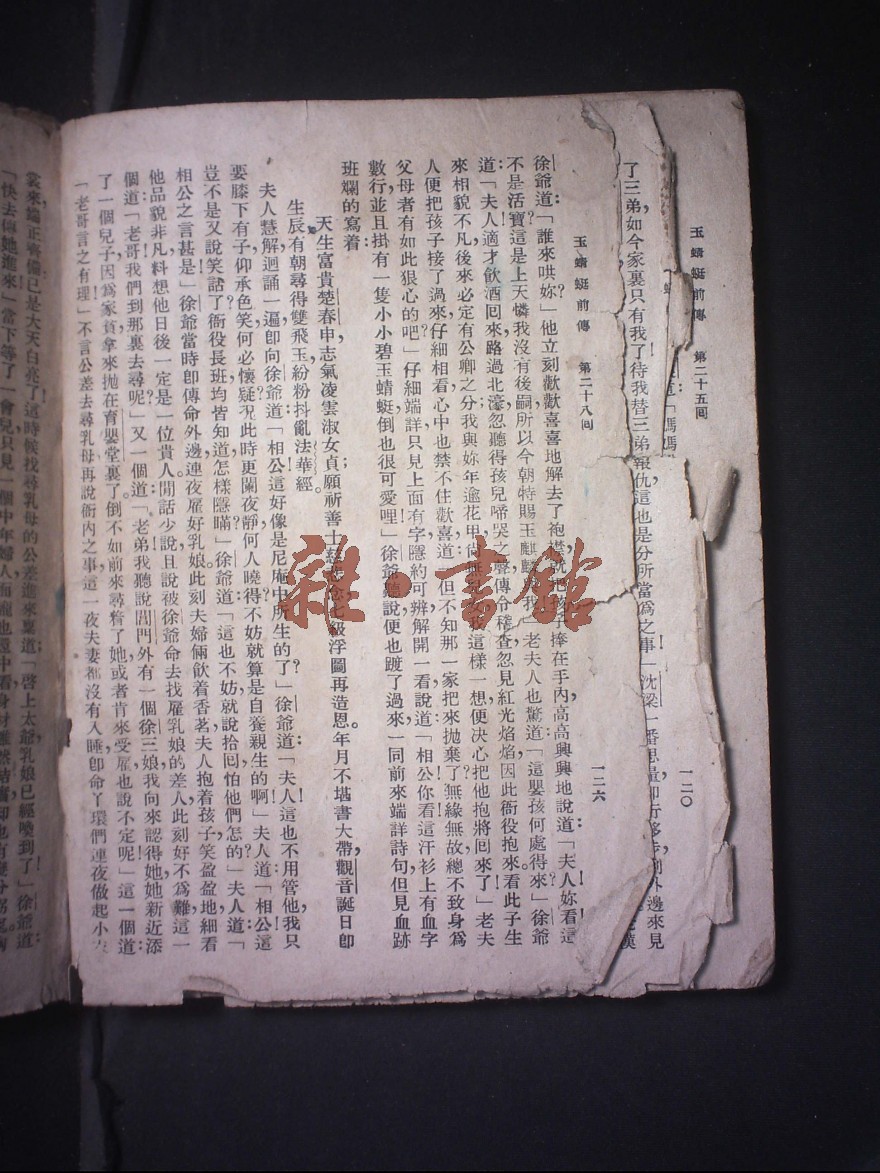 玉蜻蜓前傳　第二十五回　一二〇
道：「媽媽
了三弟，如今家裏只有我了！待我替三弟報仇，這也是分所當爲之事！」沈梁一番思量，卽行移步到外邊來見
玉蜻蜓前傳　第二十八回　一二六
徐爺道：「誰來哄妳？」他立刻歡歡喜喜地解去了袍襟，就把孩子捧在手內，高高興興地說道：「夫人！妳看這
不是活寶？這是上天憐我沒有後嗣，所以今朝特賜玉麒麟與我！」老夫人也驚道：「這嬰孩何處得來？」徐爺
道：「夫人！適才飲酒回來，路過北濠，忽聽得孩兒啼哭之聲，傳令稽查，忽見紅光焰焰，因此衙役抱來。看此子生
來相貌不凡，後來必定有公卿之分，我與妳年逾花甲，尚無兒，我這樣一想，便决心把他抱將回來了！」老夫
人便把孩子接了過來，仔細相看，心中也禁不住歡喜道：「但不知那一家把來拋棄了？無緣無故，總不致身爲
父母者有如此狠心的吧！」仔細端詳，只見上面有字，隱約可辨，解開一看，說道：「相公！你看這汗衫上有血字
數行，並且掛有一隻小小碧玉蜻蜓，倒也很可愛哩！」徐爺聽說，便也踱了過來，一同前來端詳詩句，但見血跡
班斕的寫着：
天生富貴楚春申，志氣凌雲淑女貞，願祈善士慈悲念，七級浮圖再造恩。年月不堪書大帶，觀音誕日卽
生辰，有朝尋得雙飛玉，紛粉抖亂法華經。
夫人慧解，迴誦一遍，卽向徐爺道：「相公！這好像是尼庵中所生的了？」徐爺道：「夫人！這也不用管他，我只
要膝下有子，仰承色笑，何必懷疑？況此時更闌夜靜，何人曉得？不妨就算是自養親生的啊！」夫人道：「相公！這
豈不是又說笑話了？衙役長班，均皆知道，怎樣隱瞞？」徐爺道：「這也不妨，就說拾回，怕他們怎的？」夫人道：「
相公之言甚是！」徐爺當時卽傳命外邊，連夜雇好乳娘，此刻夫婦倆飲着香茗，夫人抱着孩子，笑盈盈地細看
他品貌非凡，料想他日後一定是一位貴人。閒話少說，且說被徐爺命去找雇乳娘的差人，此刻好不爲難，這一
個道：「老哥！我們到那裏去尋呢？」又一個道：「老弟！我聽說閶門外有一個徐三娘，我向來認得她，她新近添
了一個兒子，因爲家貧，拿來拋在育嬰堂裏了。倒不如前來尋着了她，或者肯來受雇，也說不定呢！」這一個道：
「老哥言之有理！」不言公差去尋乳母，再說衙內之事，這一夜夫妻都沒有入睡，卽命丫環們連夜做起小衣
裳來，端正齊備，已是大天白亮了，這時候找尋乳母的公差進來稟道：「啓上太爺！乳娘已經喚到了！」徐爺道：
「快去傳她進來！」當下等了一會兒，只見一個中年婦人，面龐也還中看，身材雖然